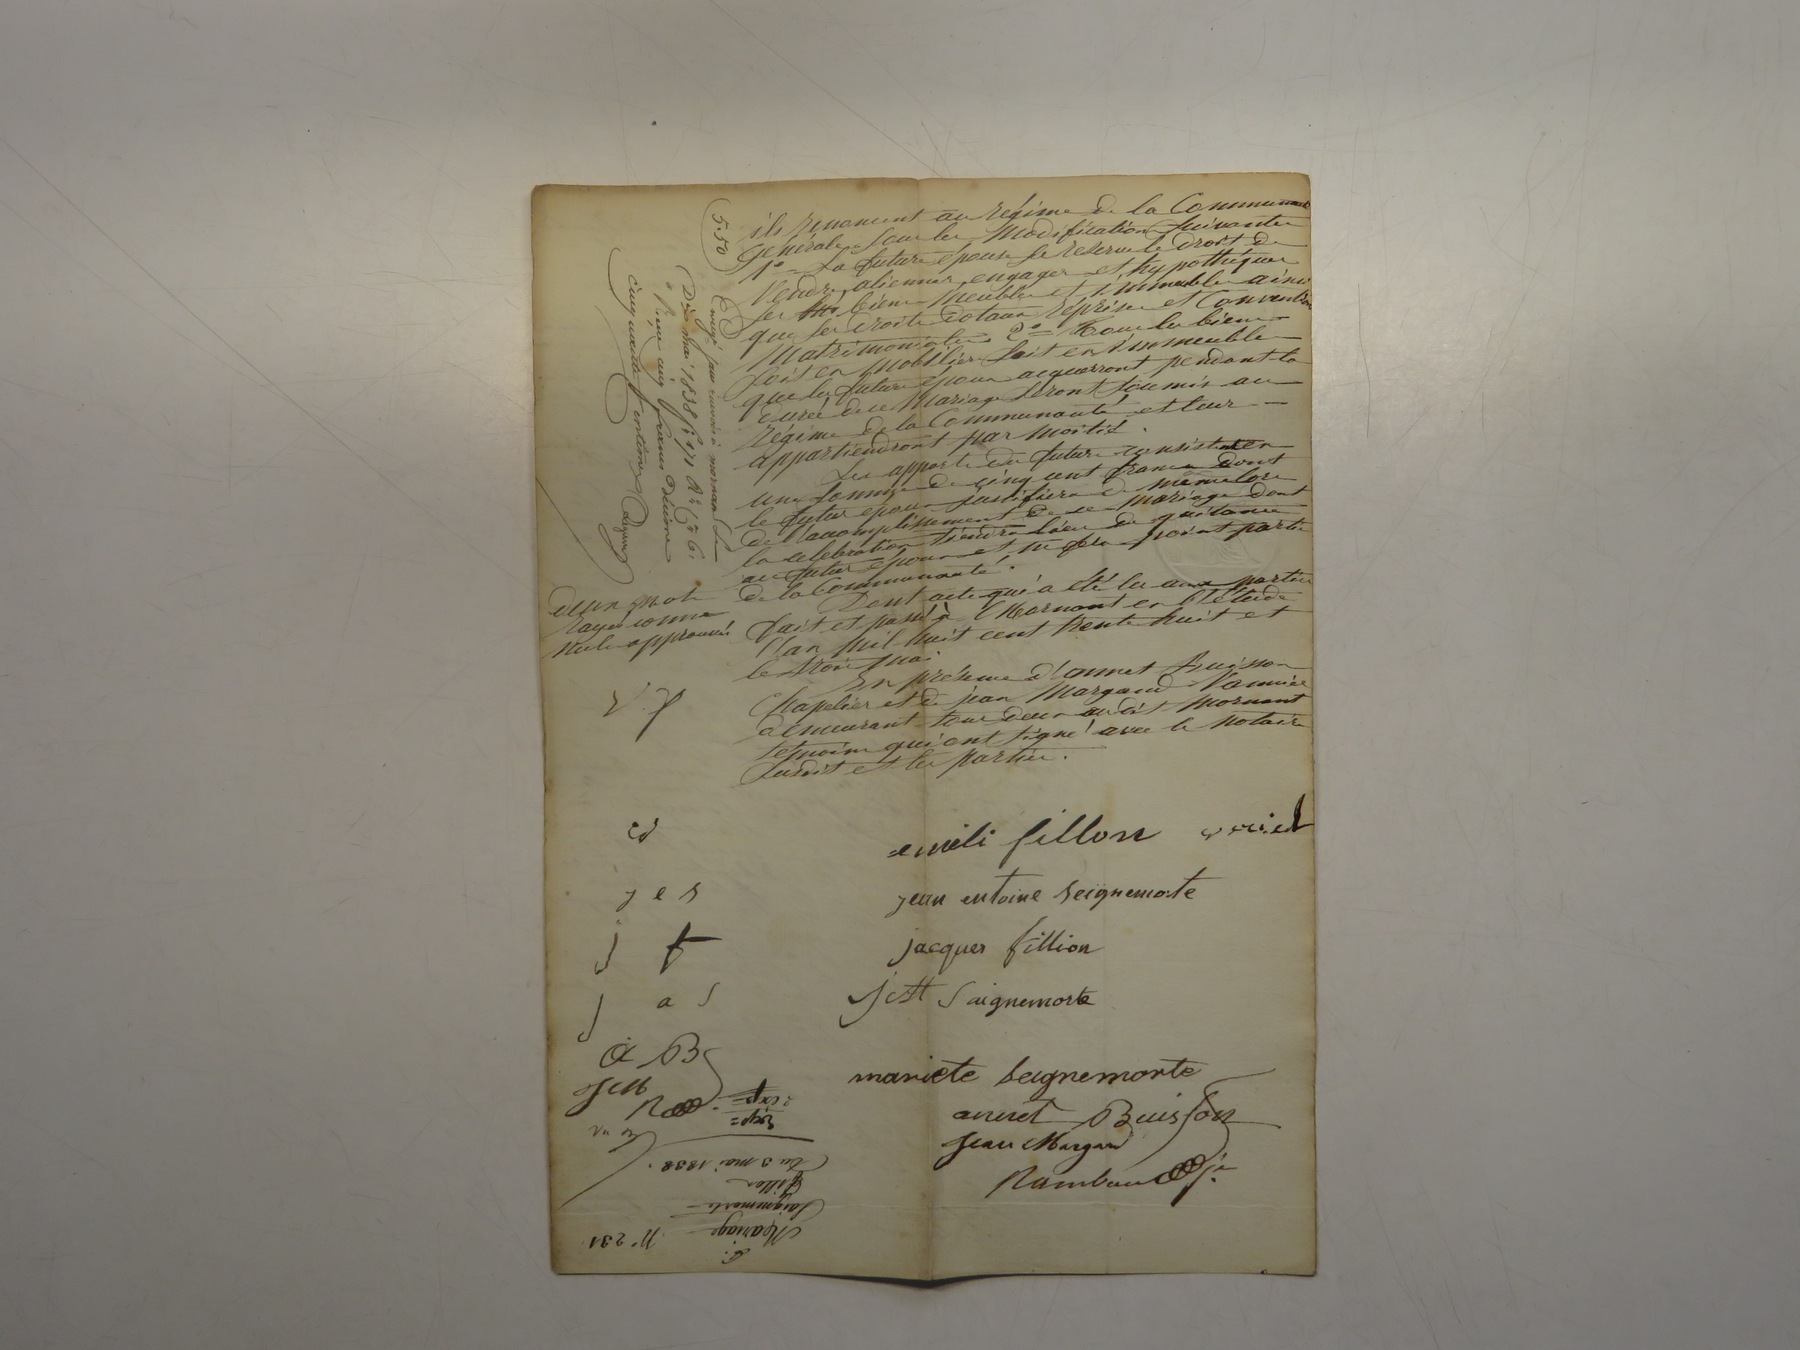 ils renoncent au régime de la Communauté
générale. Sous les Modifications suivantes
1º = La future épouse se réserve le droit de
Vendre, aliener, engager et hypothéquer
ses biens Meubles et immeubles ainsi
que ses droits dotaux reprises et Conventions
Matrimoniales 2º = Tous les biens
soit en Mobilier soit en immeubles
que les futurs époux acquerront pendant la
durée de ce Mariage seront soumis au
régime de la Communauté et leur
appartiendront par moitié.
Les apports du futur consistent en
une somme de cinq cent francs dont
le futur époux justifiera de même lors
de l'accomplissement de ce mariage dont
la celebration tiendra lieu de quitance
au futur époux et ne fera point partie
de la Communauté.
Dont acte qui a été lu aux parties
fait et passé à Mornant en l'Etude
l'an mil huit cent trente huit et
le trois mai
En présence d'annet Buisson
Chapelier et de jean Margand Vannier
demeurant tous deux au dit Mornant
temoins qui ont signé avec le notaire
susdit et les parties.
5.50
Enregt par renvoi à mornant le
Dix mai 1838 fº 171 Rº Cº 6.
Reçu cinq francs décime
cinquante centimes
d'un mot
rayé comme
nul approuvé
emeli fillon
jean entoine seignemorte
j e s
jacques fillion
j f
jctt Saignemorte
j a S
mariete seignemorte
annet Buisson
A B
jean Margand
Rambaud jne
Nº 231
Mariage
Saignemorte
Fillon
du 3 mai 1838.